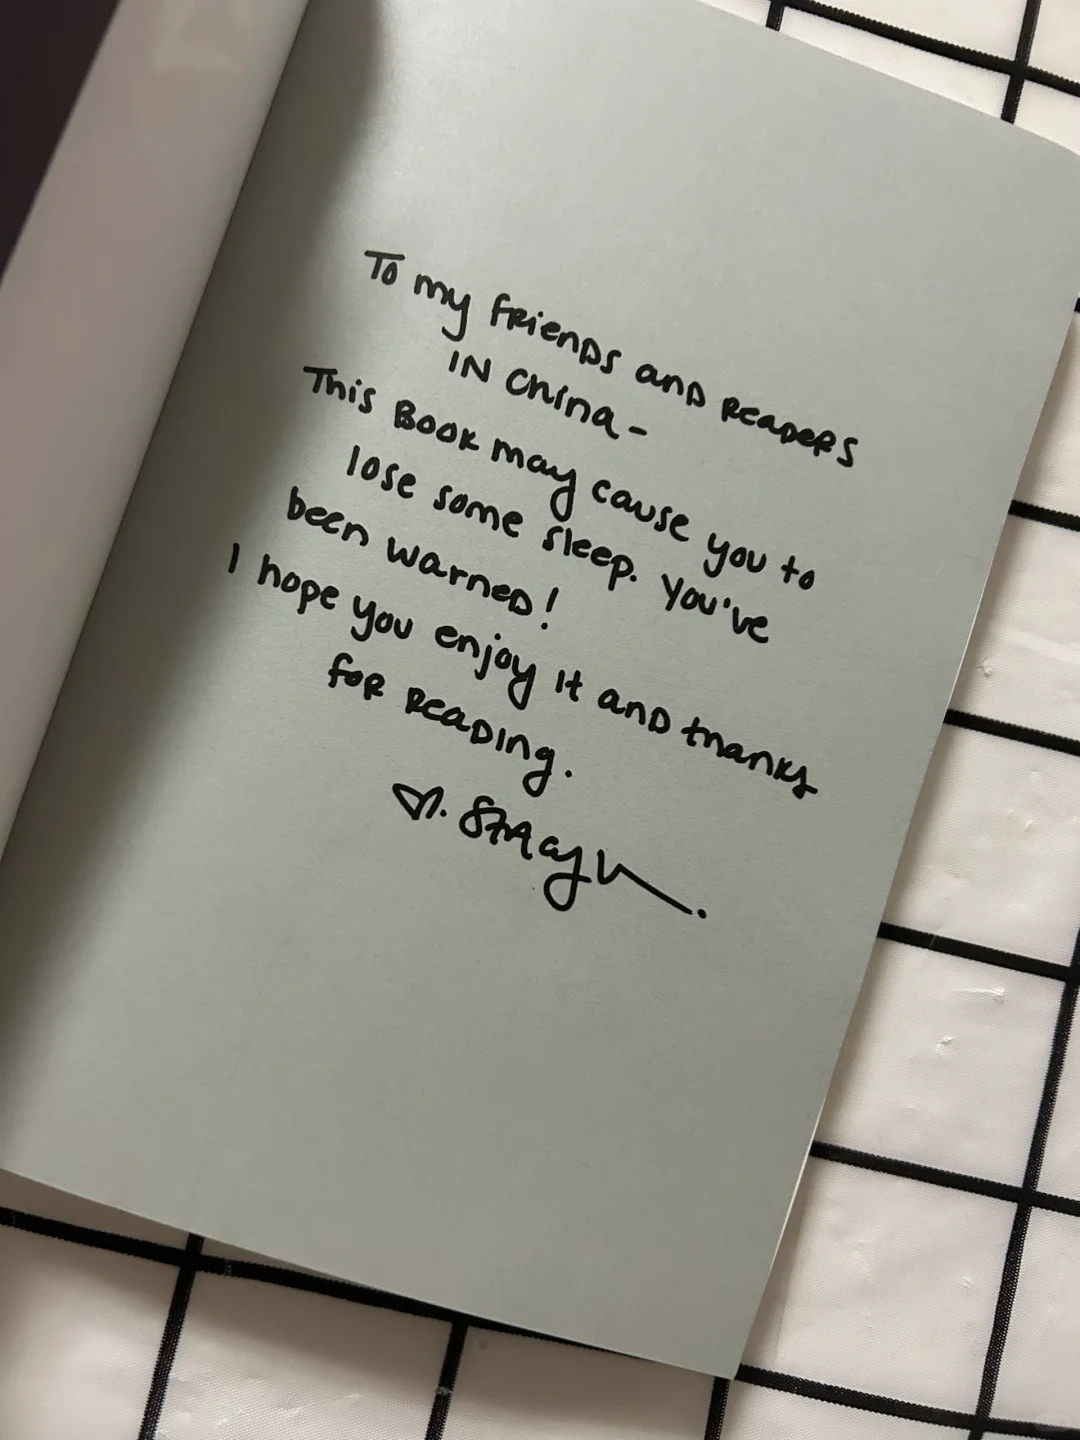 To my friends and readers
in China -
This Book may cause you to
lose some sleep. You've
been warned!
I hope you enjoy it and thanks
for reading.